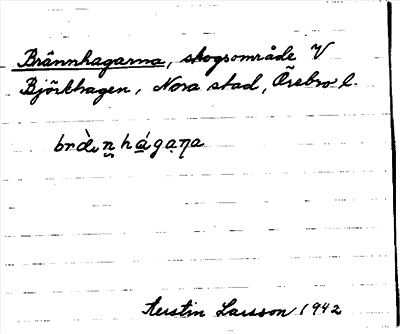 Brännhagarna, skogsområde V
Björkhagen, Nora stad, Örebro l.
brä̀ṇn̬hágaṇa
Kerstin Larsson 1942